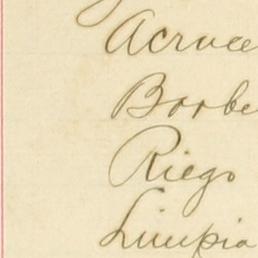 Acruce
Barbe
Riego
Limpia